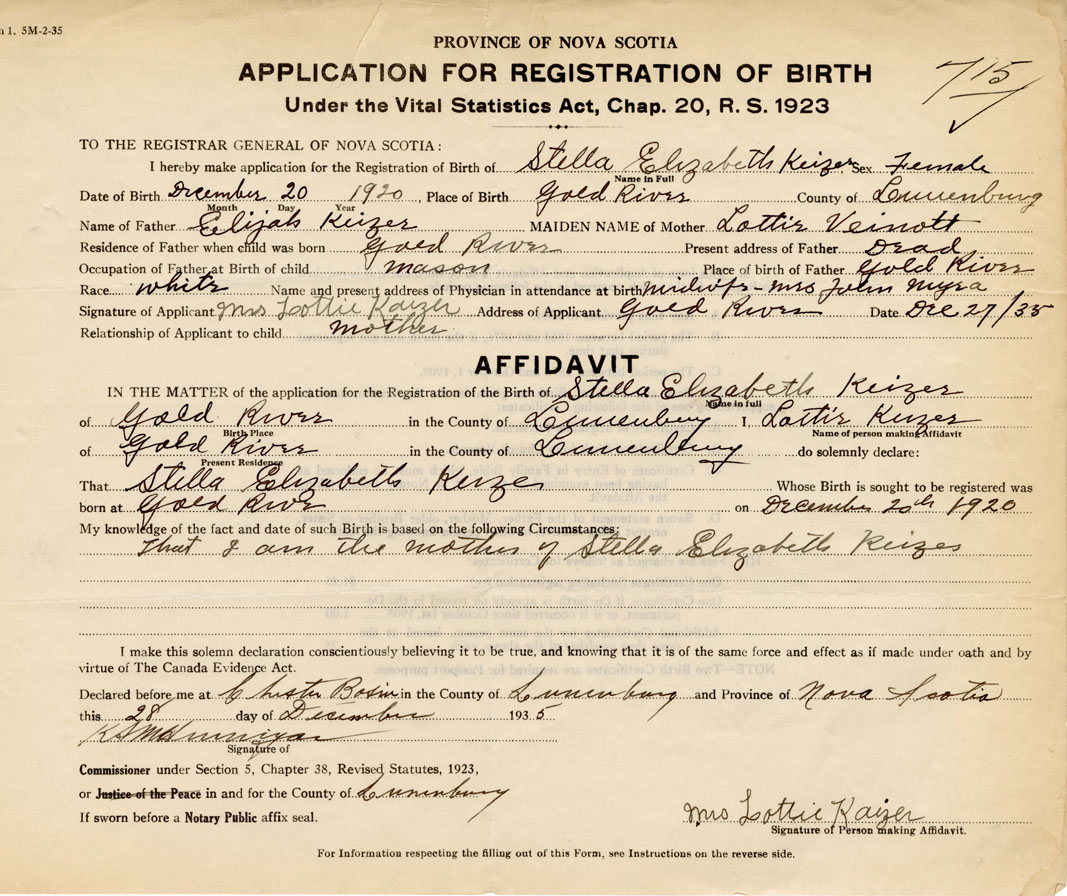 n 1. 5M-2-35
PROVINCE OF NOVA SCOTIA
APPLICATION FOR REGISTRATION OF BIRTH
715
Under the Vital Statistics Act, Chap. 20, R. S. 1923
TO THE REGISTRAR GENERAL OF NOVA SCOTIA:
I hereby make application for the Registration of Birth of Stella Elizabeth Keizer Sex Female
Name in Full
Date of Birth December 20 1920, Place of Birth Gold River County of Lunenburg
Month Day Year
Name of Father Elijah Keizer MAIDEN NAME of Mother Lottie Veinott
Residence of Father when child was born Gold River Present address of Father Dead
Occupation of Father at Birth of child mason Place of birth of Father Gold River
Race white Name and present address of Physician in attendance at birth Midwife - Mrs John Myra
Signature of Applicant Mrs Lottie Kaizer Address of Applicant Gold River Date Dec 27/35
Relationship of Applicant to child mother
AFFIDAVIT
IN THE MATTER of the application for the Registration of the Birth of Stella Elizabeth Keizer
Name in full
of Gold River in the County of Lunenburg I, Lottie Keizer
Birth Place Name of person making Affidavit
of Gold River in the County of Lunenburg do solemnly declare:
Present Residence
That Stella Elizabeth Keizer Whose Birth is sought to be registered was
born at Gold River on December 20th 1920
My knowledge of the fact and date of such Birth is based on the following Circumstances:
That I am the mother of Stella Elizabeth Keizer
I make this solemn declaration conscientiously believing it to be true, and knowing that it is of the same force and effect as if made under oath and by
virtue of The Canada Evidence Act.
Declared before me at Chester Basin in the County of Lunenburg and Province of Nova Scotia
this 28 day of December 1935
Signature of
Commissioner under Section 5, Chapter 38, Revised Statutes, 1923,
or Justice of the Peace in and for the County of Lunenburg
If sworn before a Notary Public affix seal.
Mrs Lottie Kaizer
Signature of Person making Affidavit.
For Information respecting the filling out of this Form, see Instructions on the reverse side.